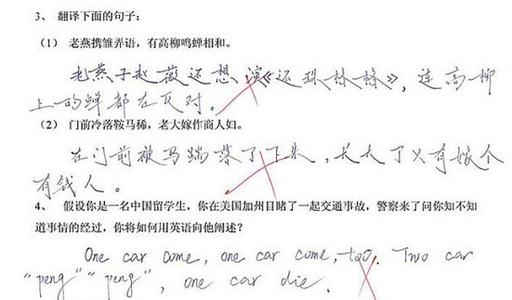 3、 翻译下面的句子：
（1） 老燕携雏弄语，有高柳鸣蝉相和。
老燕子赵薇还想演《还珠格格》，连高柳
上的蝉都在反对。
（2） 门前冷落鞍马稀，老大嫁作商人妇。
在门前被马踹落了下来，长大了又有嫁个
有钱人。
4、 假设你是一名中国留学生，你在美国加州目睹了一起交通事故，警察来了问你知不知
道事情的经过，你将如何用英语向他阐述？
One car come, one car come, too. Two car
"peng" "peng", one car die.